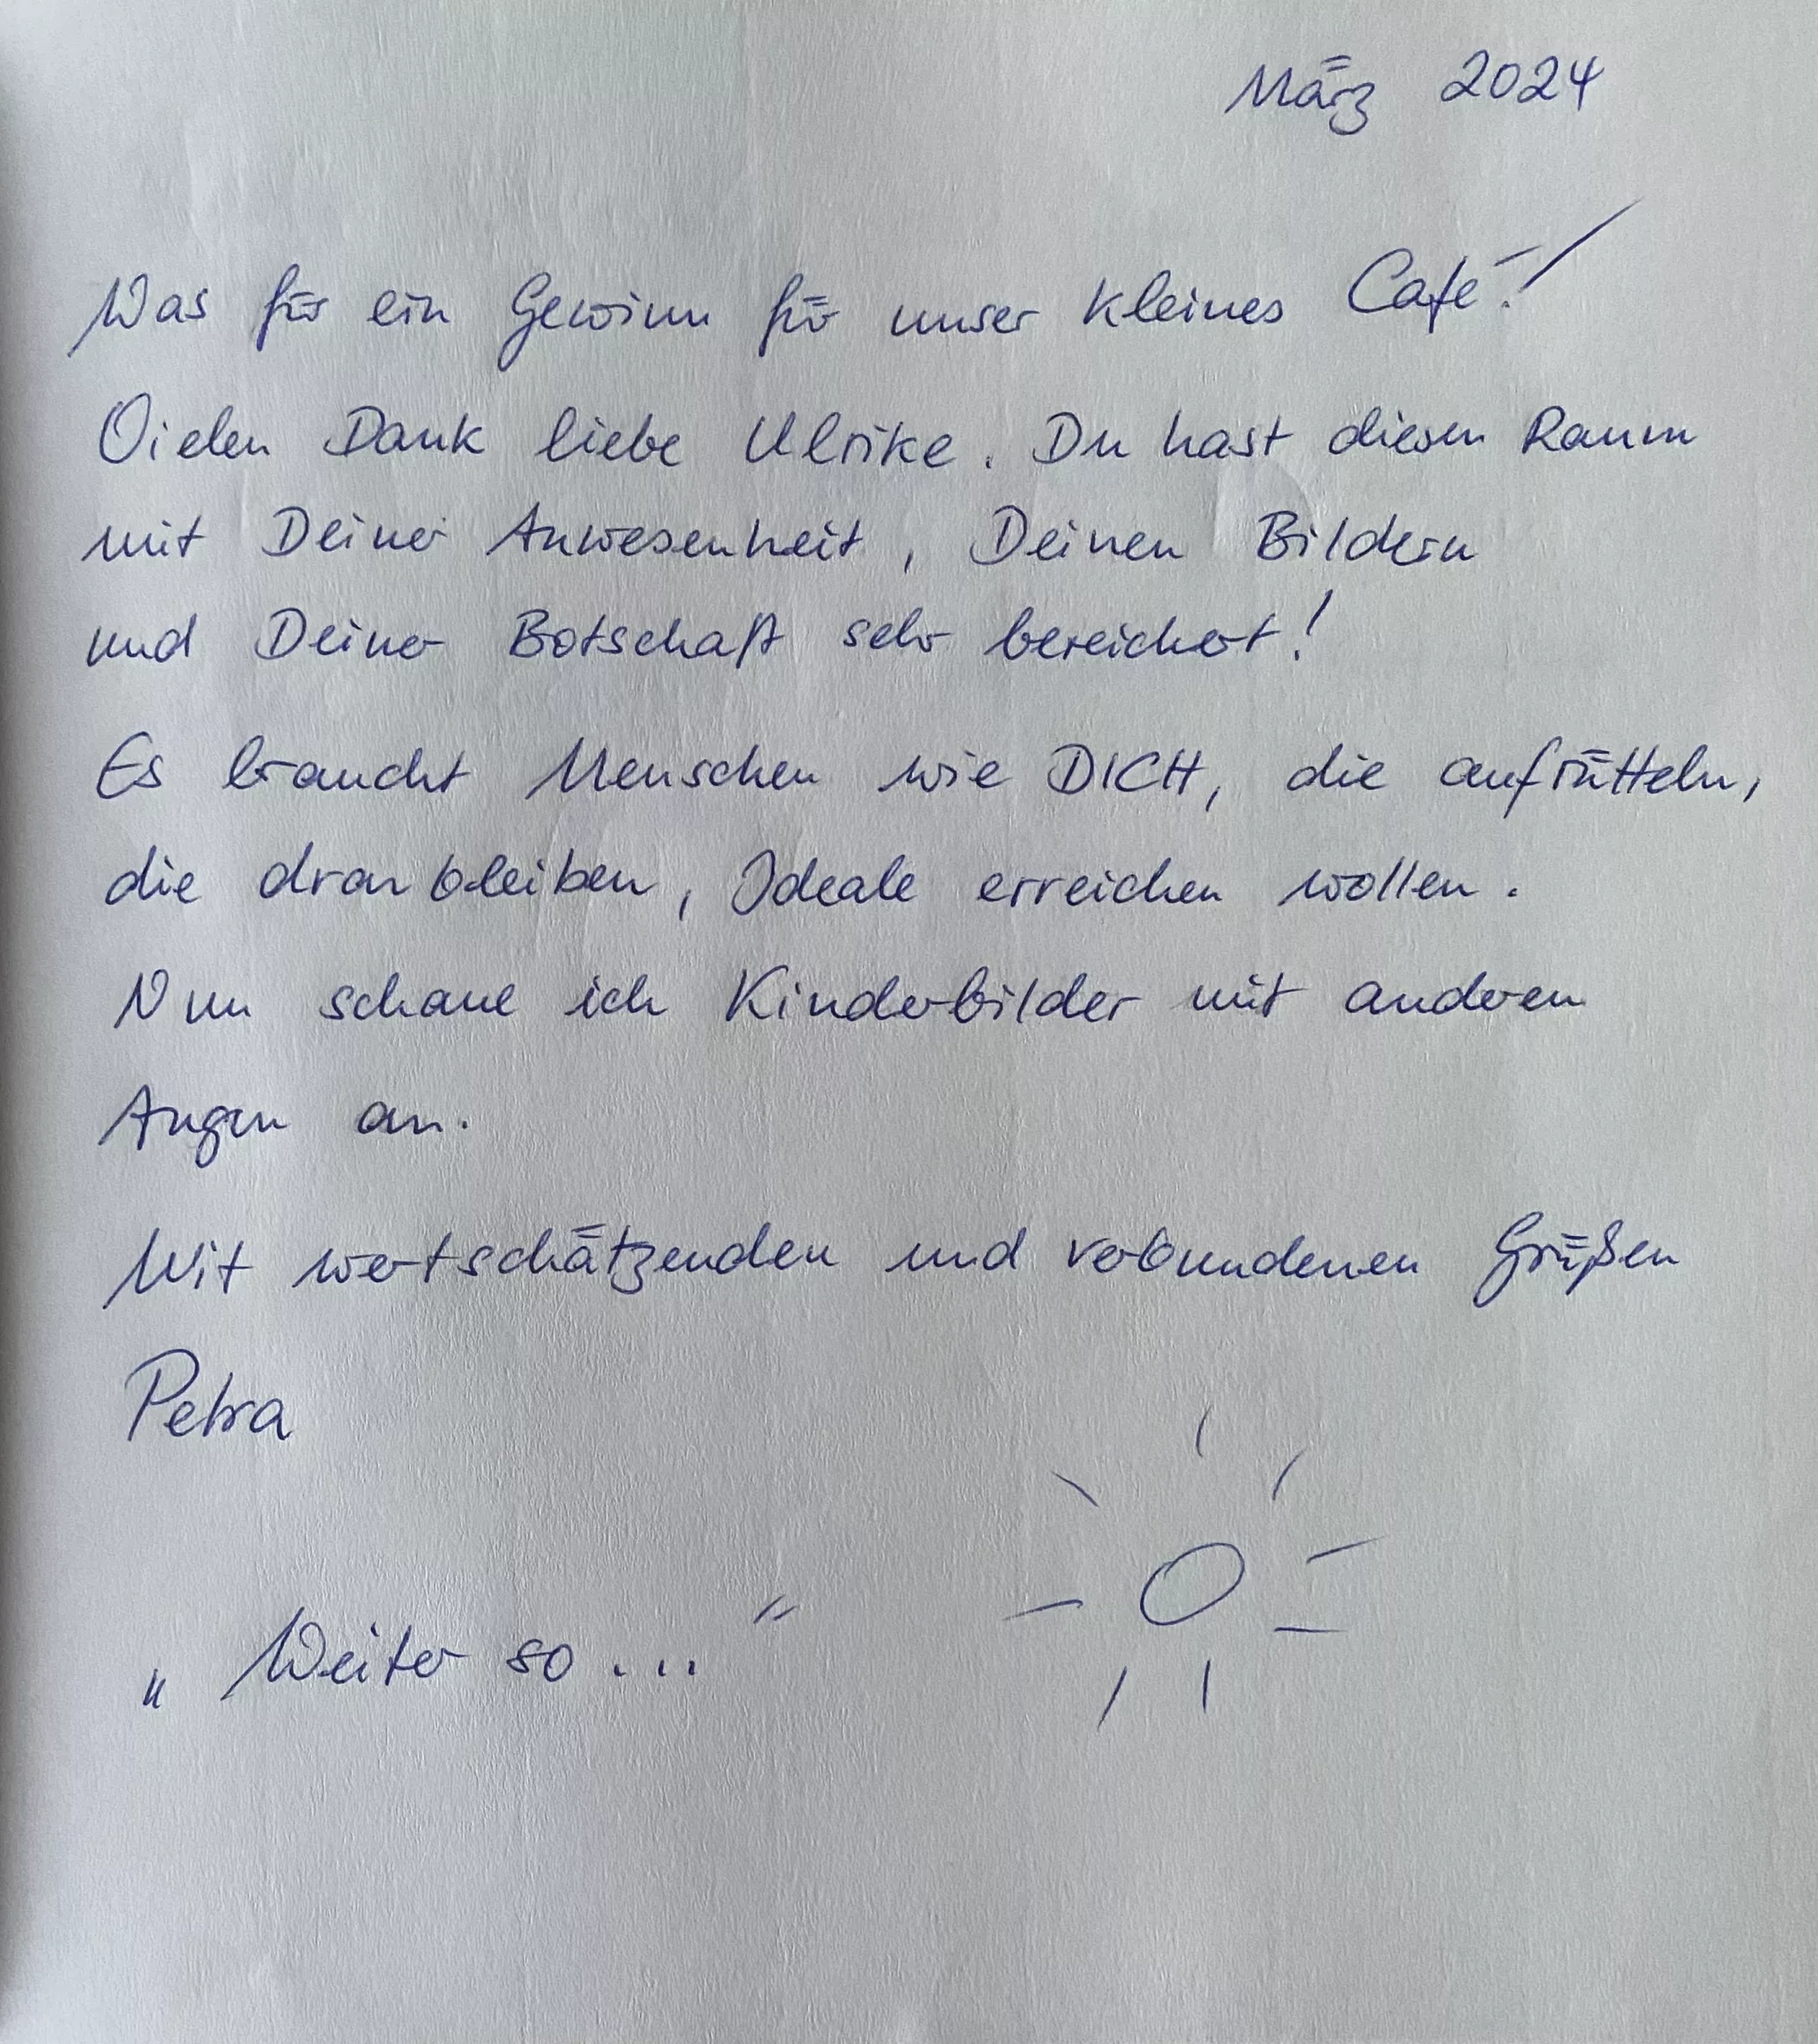 März 2024
Was für ein Gewinn für unser kleines Café!
Vielen Dank liebe Ulrike. Du hast diesen Raum
mit Deiner Anwesenheit, Deinen Bildern
und Deiner Botschaft sehr bereichert!
Es braucht Menschen wie DICH, die aufrütteln,
die dran bleiben, Ideale erreichen wollen.
Nun schaue ich Kinderbilder mit anderen
Augen an.
Mit wertschätzenden und verbundenen Grüßen
Petra
„Weiter so..."